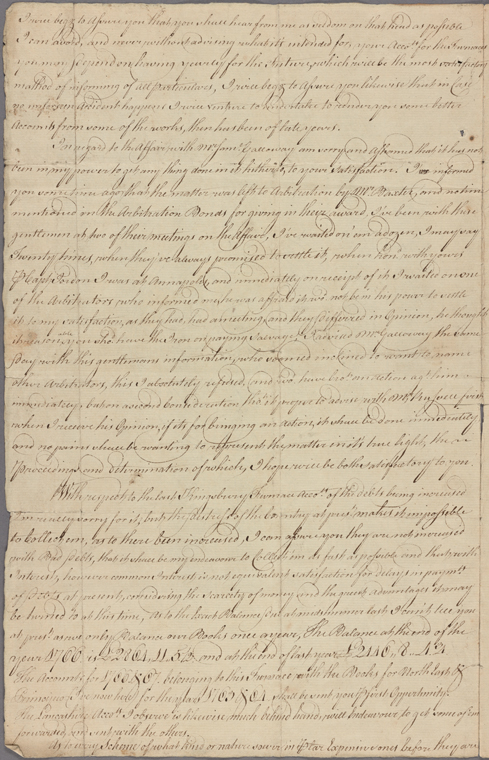 I will beg to assure you that you shall hear from me as seldom on that head as possible
I can avoid, and never without advising what its intended for, your Accots. for the Furnaces
you may depend on having yearly for the Future, which will be the most satisfactory
method of informing of all particulars, I will beg to assure you likewise that in case
no unforeseen accident happens I will venture to undertake to render you some better
Accounts from some of the works, then has been of late years.
In regard to the Affair with Mr. Galloway am sorry and ashamed that it has not
been in my power to get any thing done in it hitherto, to your Satisfaction. I informed
you some time ago that the matter was left to Arbitration by Mr. and no time
mentioned in the Arbitration Bonds for giving in their award. I've been with these
gentlemen at two of their meetings on the Affair, I've waited on em a dozen, I may say
Twenty times, when they've always promised to settle it, when I rec'd yours
p Capt. I was at Annapolis, and immediately on receipt of it I waited on one
of the Arbitrators who informed me he was afraid it wd. not be in his power to settle
it to my satisfaction, as they had, had a meeting, and they differed in Opinion, he thought
you shod. have the Iron on paying Salvage. I advised Mr. Galloway the same
day with this gentlemans information, who seemed inclined to want to name
other Arbitrators, this I absolutely refused, and wod. have bro't an Action agt. him
immediately, but on a second Consideration tho't it proper to advise with Mr. first
when I receive his Opinion, if its for bringing an action, it shall be done immediately
and no pains shall be wanting to represent the matter in its true light, the
proceedings and determination of which, I hope will be both satisfactory to you.
With respect to the last Kingsbury Furnace Accot. of the debts being increased
I'm really sorry for it, but the distress of the Country at prest. makes it impossible
to Collect em, as to there been increased, I can assure you they are not increased
with Bad Debts, that it shall be my endeavour to Collect em as fast as possible and that with
Interest, however common Interest is not equivalent satisfaction for delays in paymt.
of Debts at present, considering the scarcity of money and the great advantages it may
be turned to at this time, As to the Exact Balance due at midsummer last I can't tell you
at prest. as we only Balance our Books once a year, The Balance at the end of the
year 1766 is £2264.11.5½, and at the end of last year £2446.8.4¾
The Accounts for belonging to this Furnace with the Books for North East &
Principio I've now here for the year 1763 & 64 shall be sent you p first Opportunity.
The Lancashire Accots. I observe is likewise much behind hand, will Endeavour to get some of em
forwarded and sent with the others.
As to any Scheme of what kind or nature soever in Extensive ones before they are